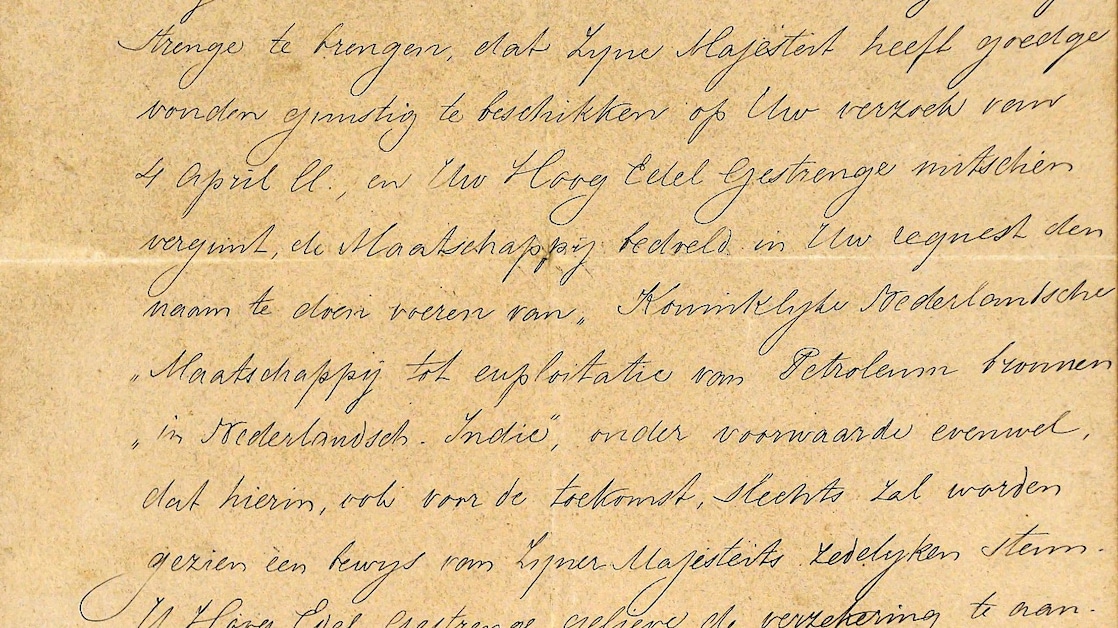 strenge te brengen, dat Zyne Majesteit heeft goedge
vonden gunstig te beschikken op Uw verzoek van
4 April ll., en Uw Hoog Edel Gestrenge mitsdien
vergunt, de Maatschappij bedoeld in Uw request den
naam te doen voeren van „Koninklyke Nederlandsche
„Maatschappij tot exploitatie van Petroleum bronnen
„in Nederlandsch-Indië", onder voorwaarde evenwel,
dat hierin, ook voor de toekomst, slechts zal worden
gezien een bewys van Zyner Majesteits zedelyken steun.
U Hoog Edel Gestrenge gelieve de verzekering te aan-